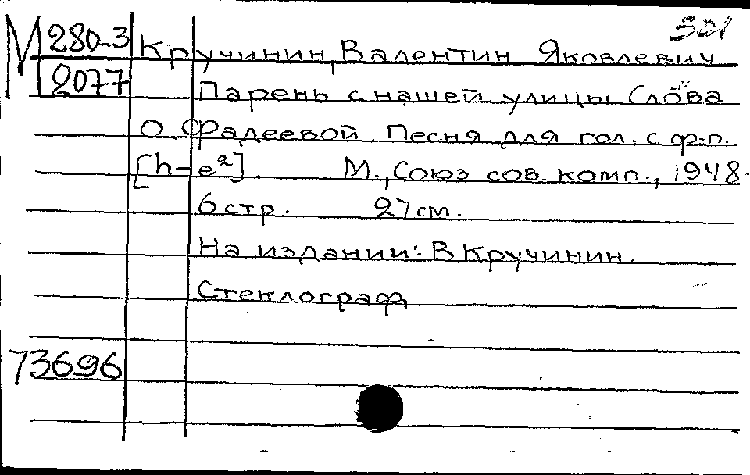 501
М 280-3 Кручинин, Валентин Яковлевич
2077 Парень с нашей улицы Слова
О. Фадеевой. Песня для гол. с ф-п.
[h-e²]. М., Союз сов. комп., 1948.
6 стр. 27 см.
На издании: В Кручинин.
Стеклограф
73696